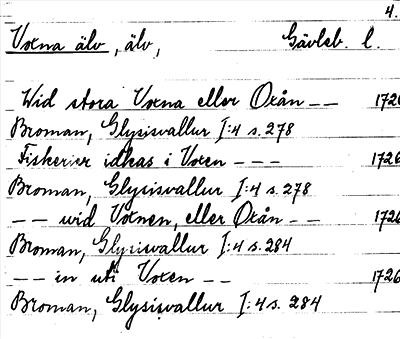 4.
Voxna älv, älv, Gävleb. l.
Wid stora Voxna eller Oxån -- 1726
Broman, Glysisvallur I:4 s. 278
Fiskerier idkas i Voxen --- 1726
Broman, Glysisvallur I:4 s. 278
-- wid Voxnen, eller Oxån -- 1726
Broman, Glysisvallur I:4 s. 284
-- in uti Voxen -- 1726
Broman, Glysisvallur I:4 s. 284